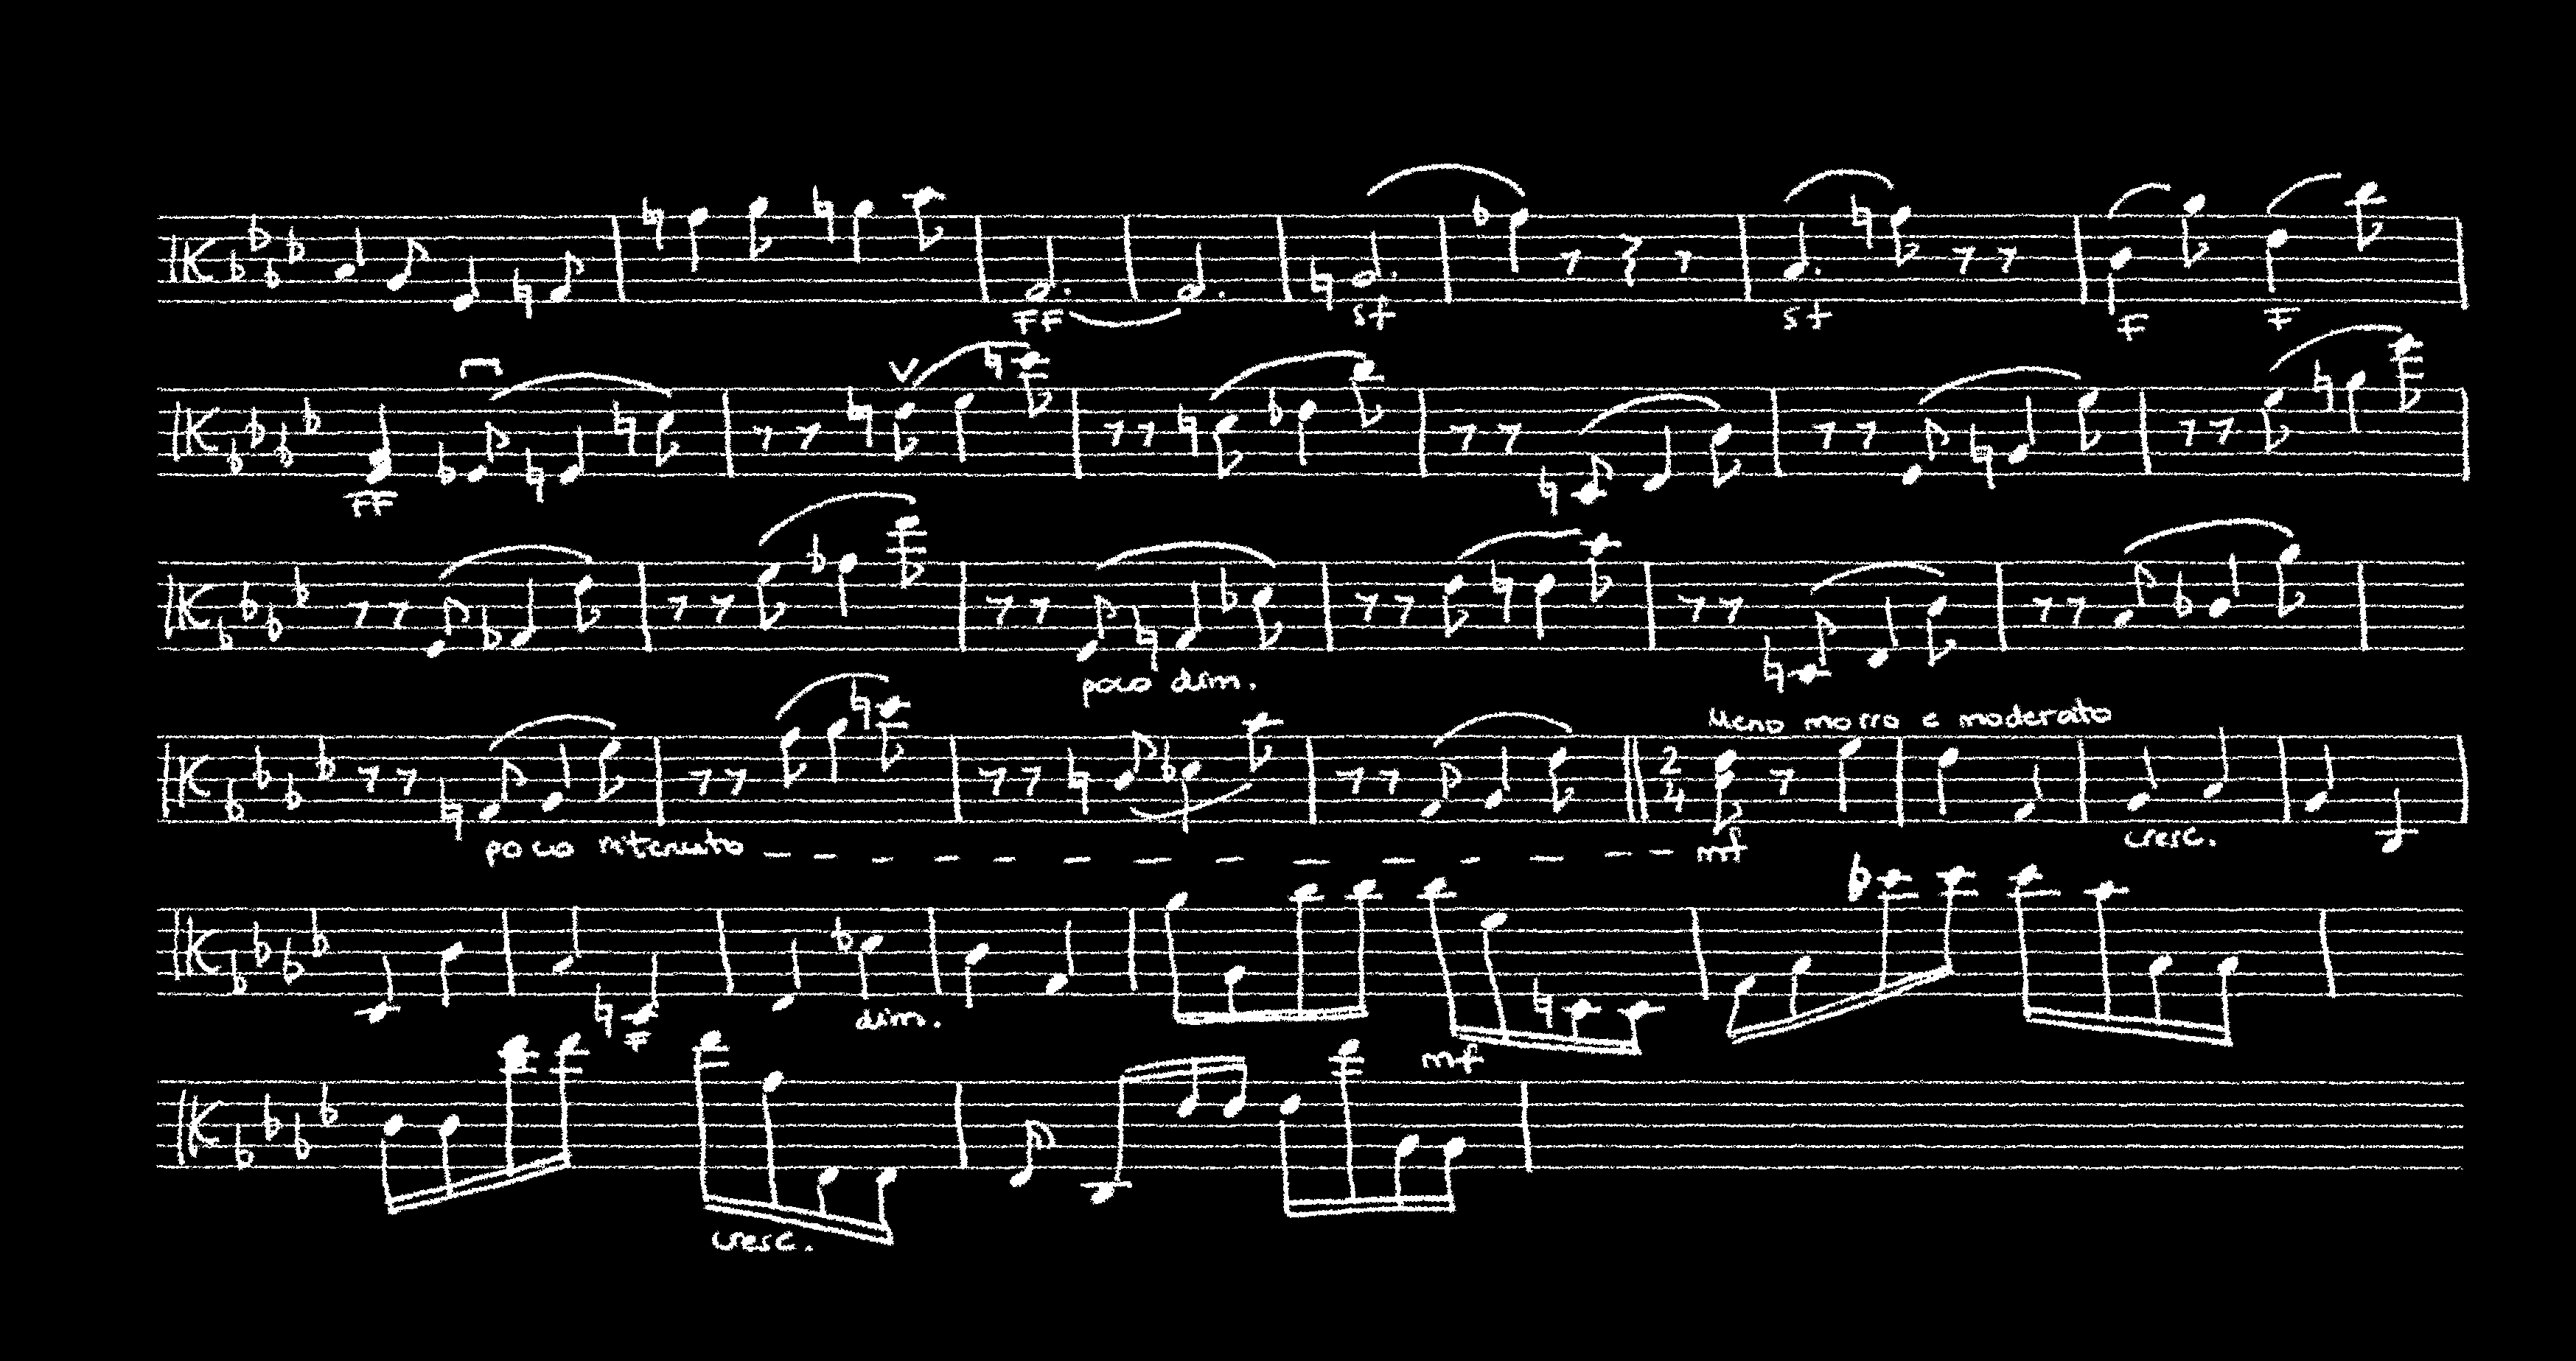 FF sf sf F F
FF
poco dim.
Meno morro e moderato
2
4
poco ritenuto mf
cresc.
F dim. mf
cresc.